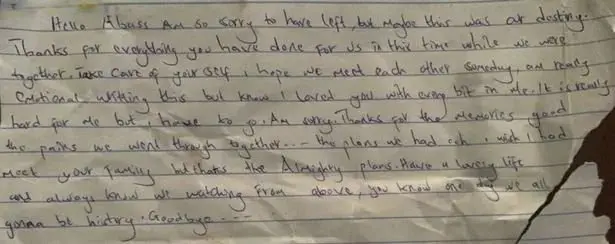 Hello Abass Am so sorry to have left, but maybe this was our destiny.
Thanks for everything you have done for us in this time while we were
together. Take care of your self i hope we meet each other someday, am really
Emotional writting this but know I loved you with every bit in me. It is really
hard for me but i have to go. Am sorry. Thanks for the memories good
the pains we went through together... - the plans we had ooh i wish I had
meet your family but thats the Almighty plans. Have a lovely life
and always know we watching from above, you know one day we all
gonna be history. Goodbye. - - -